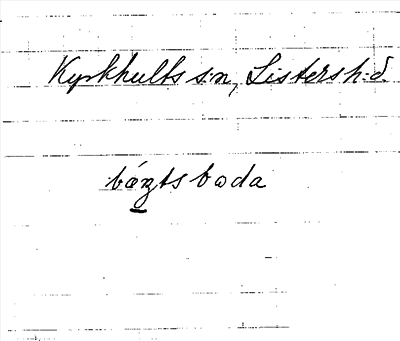 Kyrkhults s:n, Listers h:d.
bǽꞃtsbωda